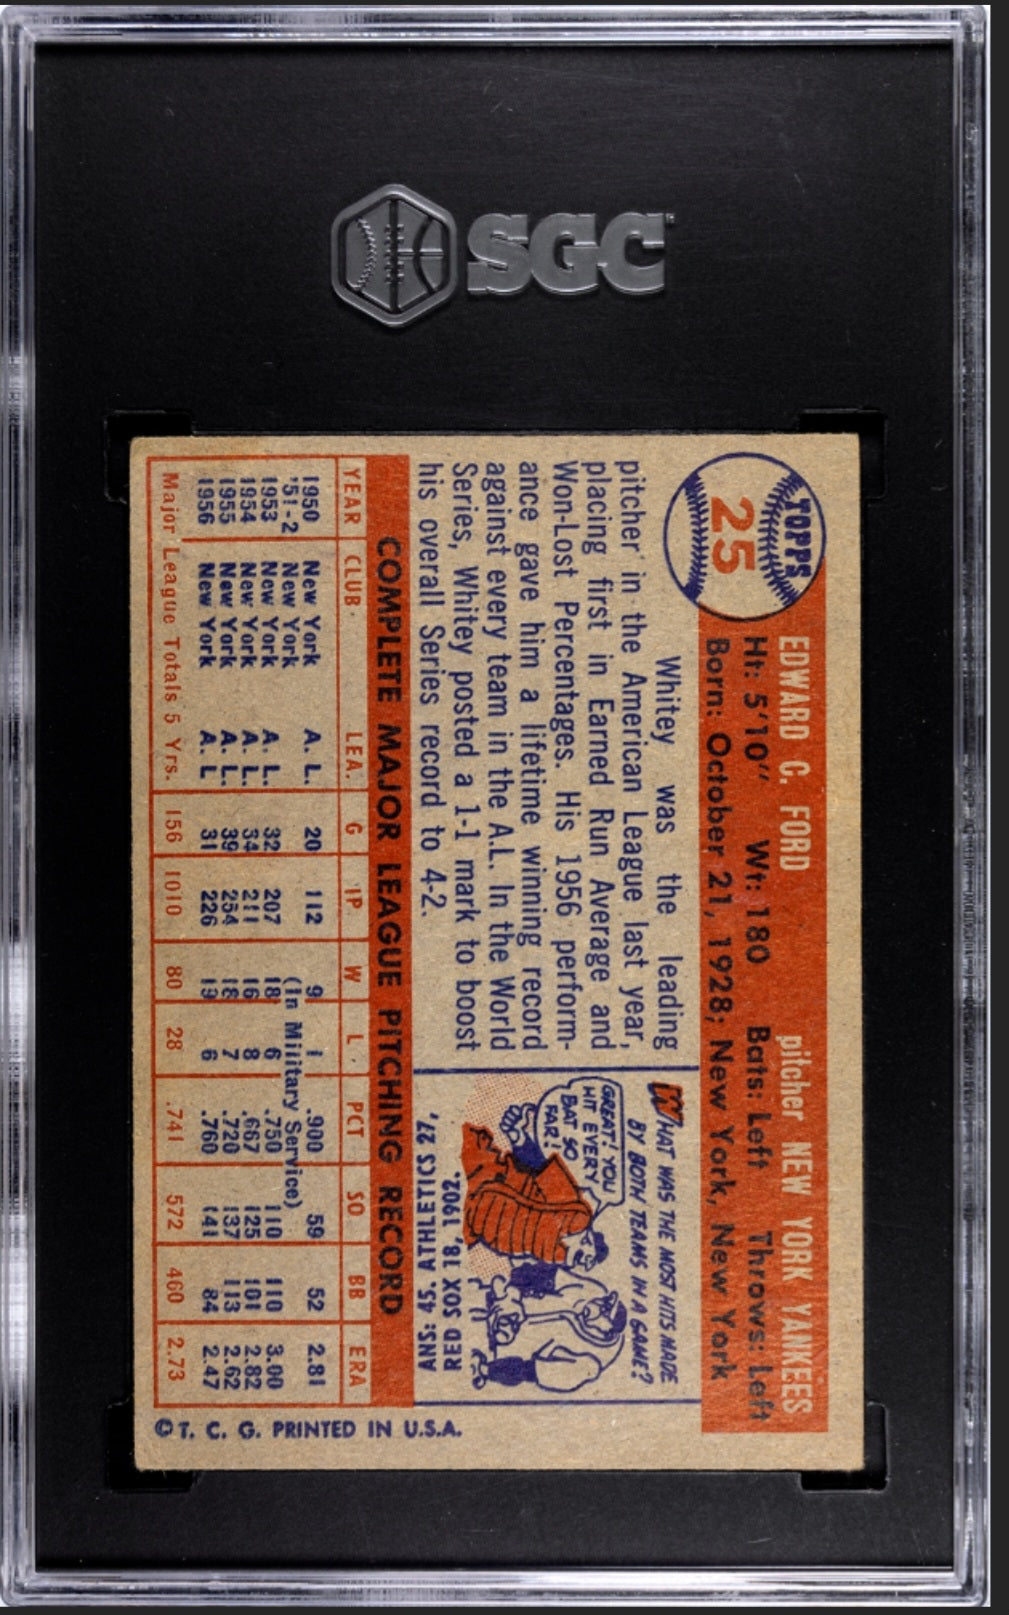 SGC
TOPPS
25
EDWARD C. FORD pitcher NEW YORK YANKEES
Ht: 5'10" Wt: 180 Bats: Left Throws: Left
Born: October 21, 1928; New York, New York
Whitey was the leading
pitcher in the American League last year,
placing first in Earned Run Average and
Won-Lost Percentages. His 1956 perform-
ance gave him a lifetime winning record
against every team in the A.L. In the World
Series, Whitey posted a 1-1 mark to boost
his overall Series record to 4-2.
WHAT WAS THE MOST HITS MADE
BY BOTH TEAMS IN A GAME?
GREAT! YOU
HIT EVERY
BAT SO
FAR!
ANS: 45. ATHLETICS 27,
RED SOX 18, 1902.
COMPLETE MAJOR LEAGUE PITCHING RECORD
YEAR CLUB LEA. G IP W L PCT SO BB ERA
1950 New York A. L. 20 112 9 1 .900 59 52 2.81
'51-2 New York (In Military Service)
1953 New York A. L. 32 207 18 6 .750 110 110 3.00
1954 New York A. L. 34 211 16 8 .667 125 101 2.82
1955 New York A. L. 39 254 18 7 .720 137 113 2.62
1956 New York A. L 31 226 19 6 .760 141 84 2.47
Major League Totals 5 Yrs. 156 1010 80 28 .741 572 460 2.73
© T. C. G. PRINTED IN U.S.A.